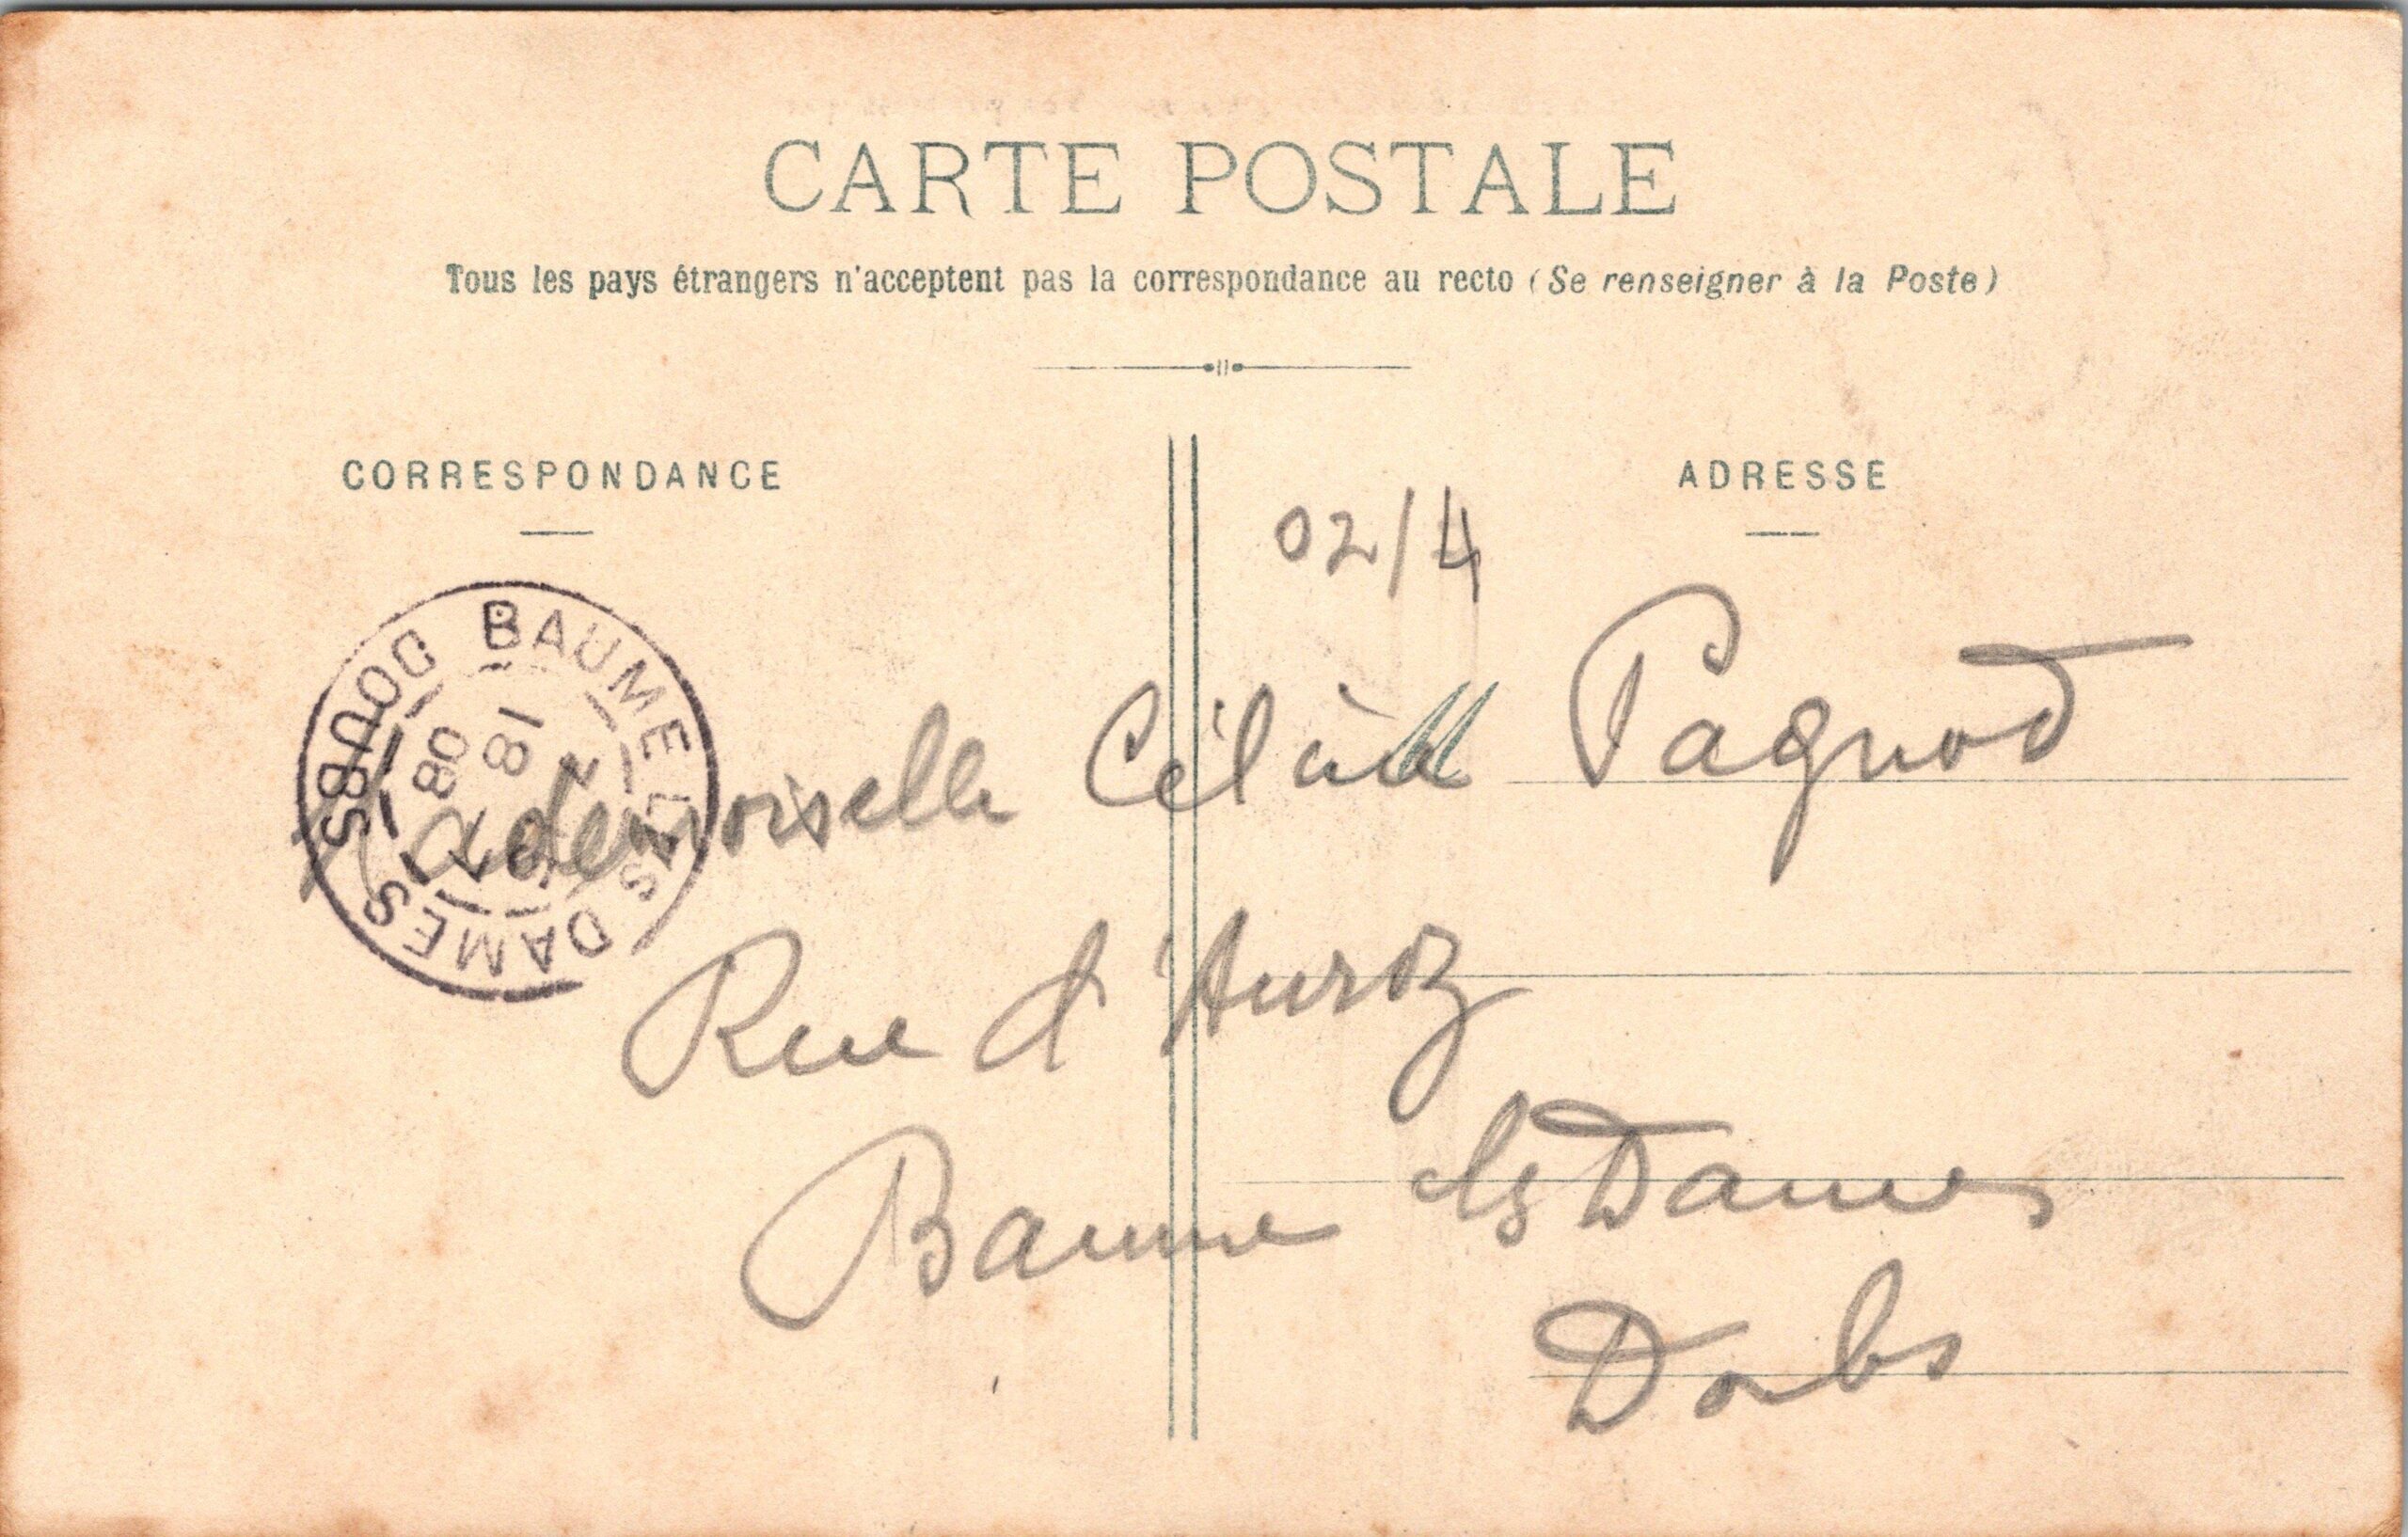 CARTE POSTALE
Tous les pays étrangers n'acceptent pas la correspondance au recto (Se renseigner à la Poste)
CORRESPONDANCE
ADRESSE
02/4
BAUME LES DAMES DOUBS
18
08
Mademoiselle Pagnod
Rue d'
Baume les Dames
Doubs